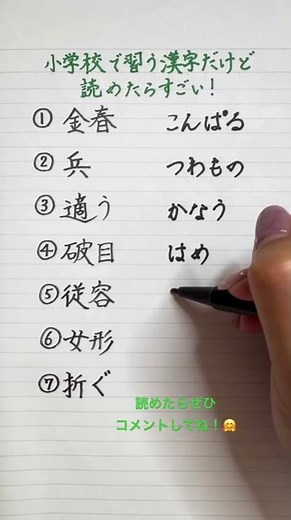 小学校で習う漢字だけど
読めたらすごい!
① 金春 こんぱる
② 兵 つわもの
③ 適う かなう
④ 破目 はめ
⑤ 従容
⑥ 女形
⑦ 折ぐ
読めたらぜひ
コメントしてね!🤗